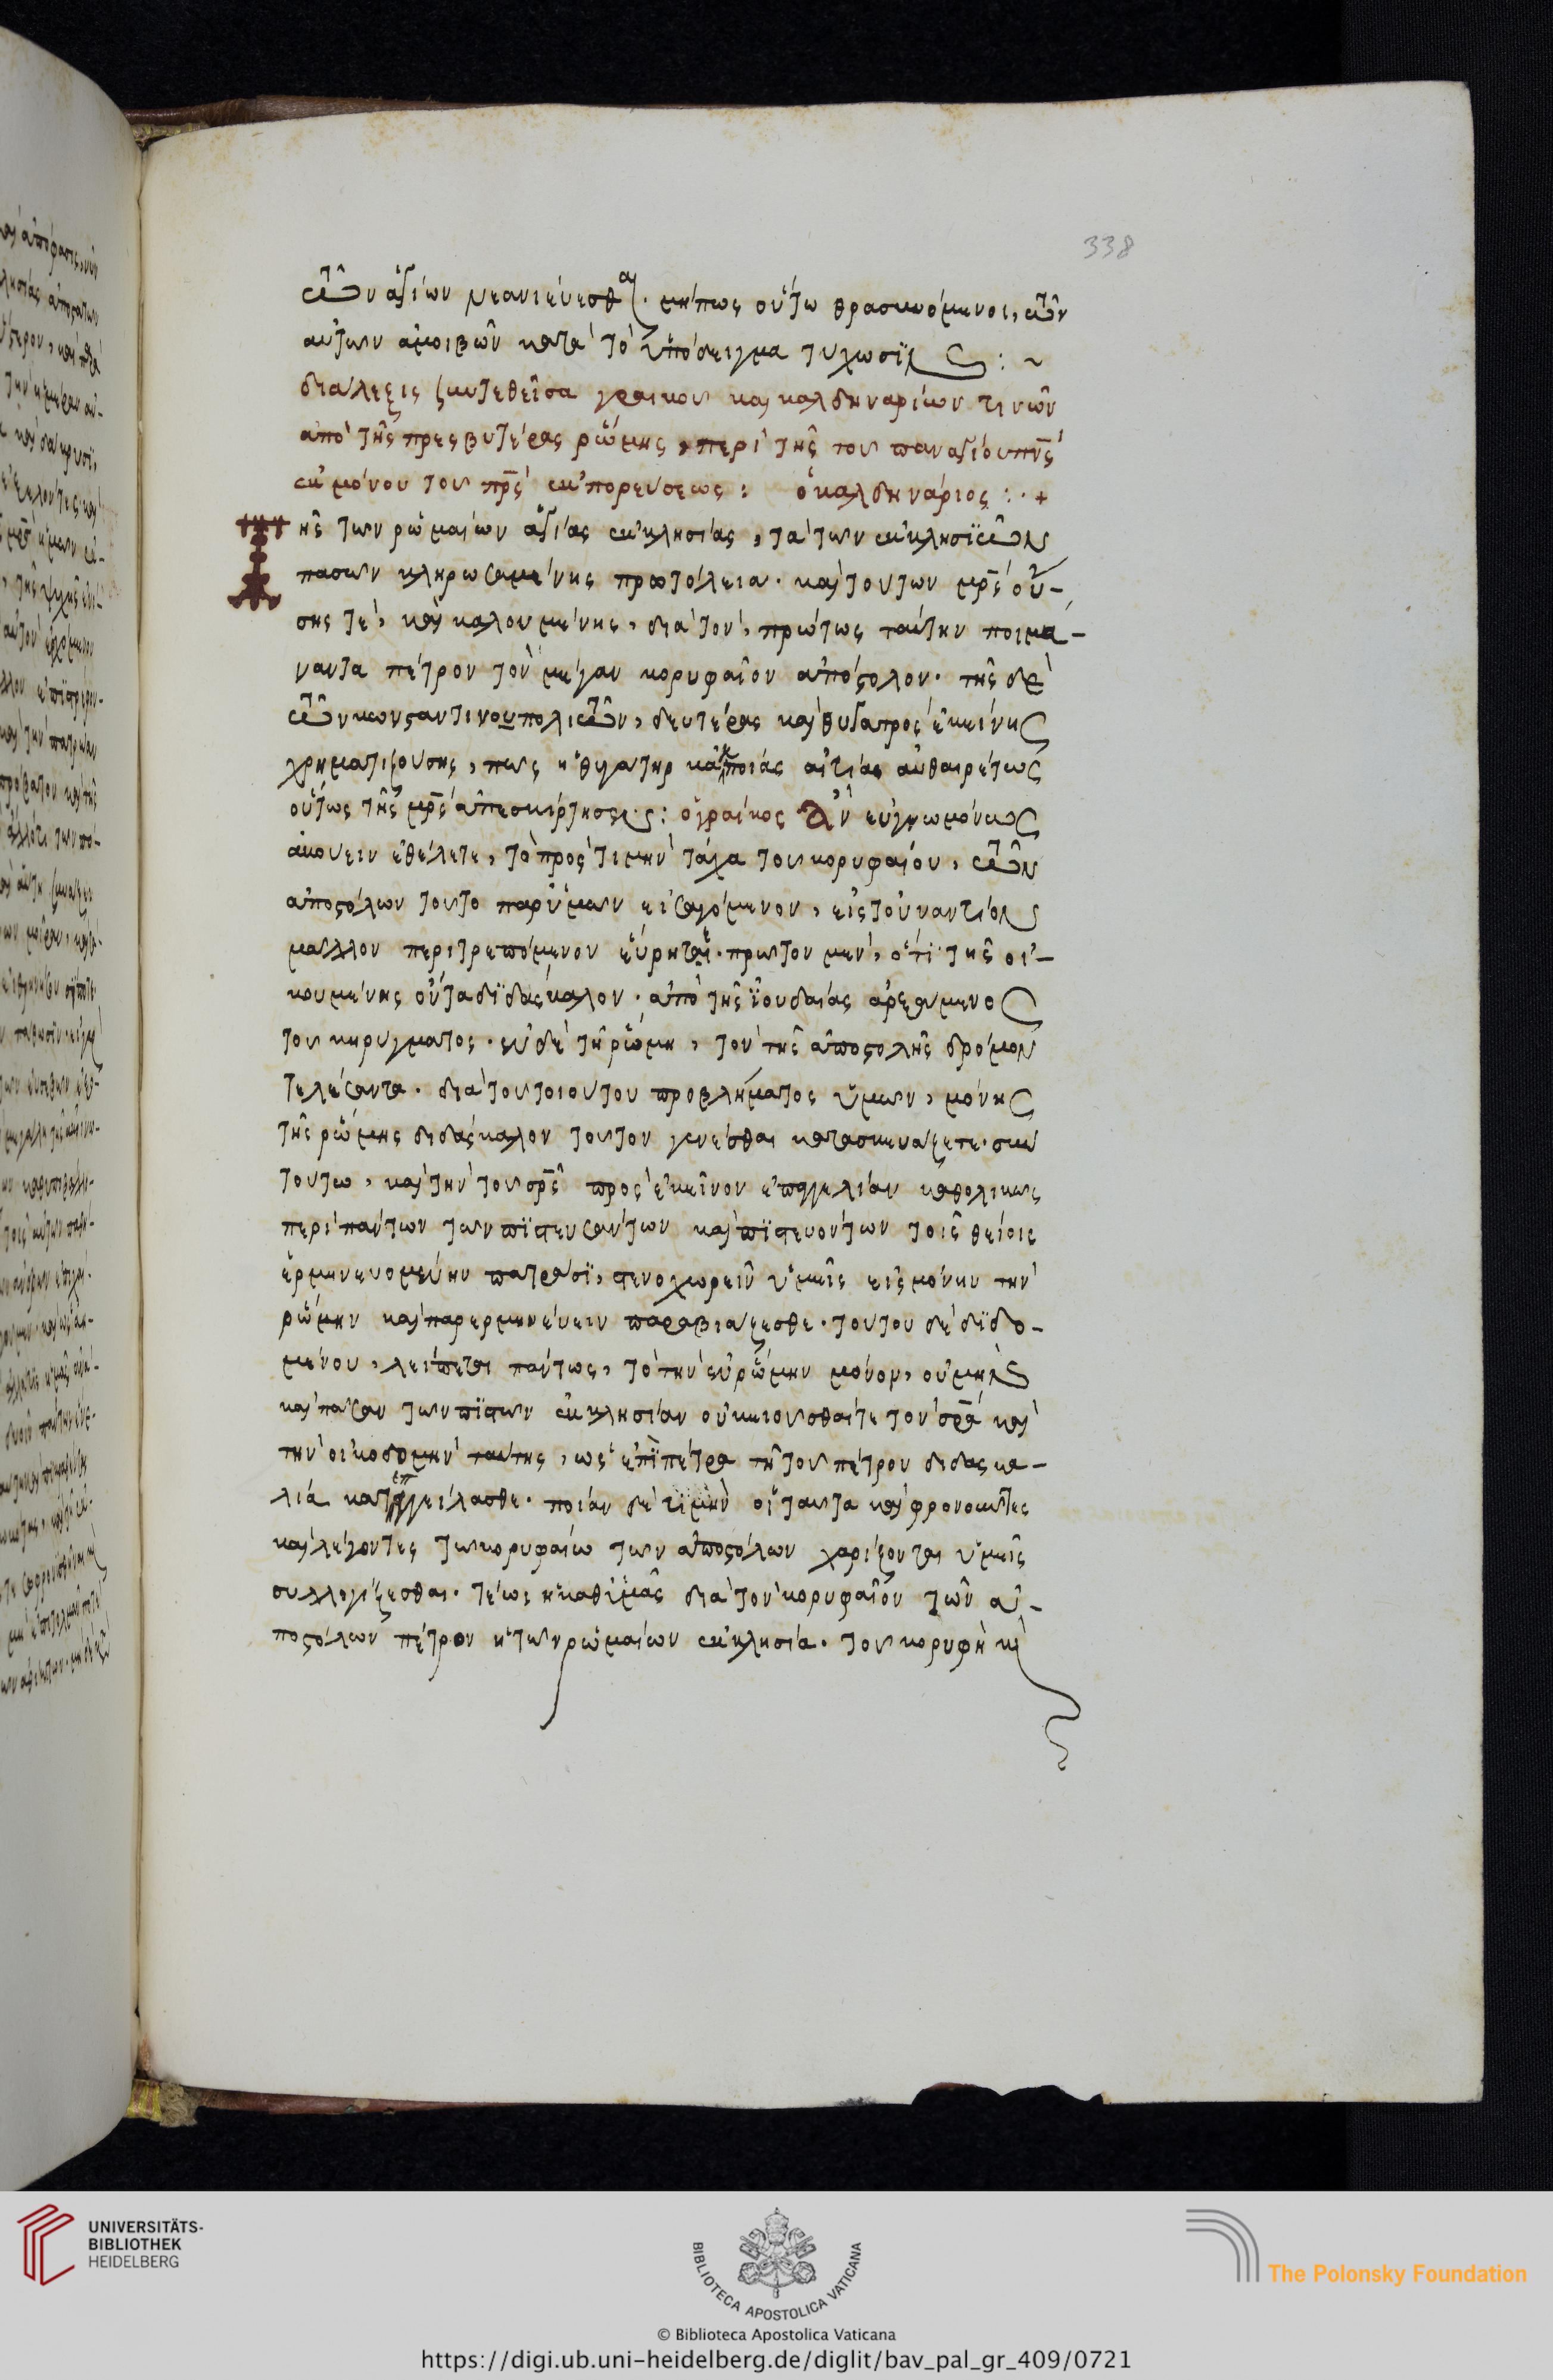 338
τῶν ἁγίων νεανιεύεσθαι. μήπως οὕτω θρασυνόμενοι, τῶν
αὐτῶν ἀμοιβῶν κατὰ τὸ ὑπόδειγμα τύχωσϊν : ~
διάλεξις συντεθεῖσα γραικοῦ καὶ καλδηναρίων τινῶν
ἀπὸ τῆς πρεσβυτέρας ῥώμης, περὶ τῆς τοῦ παναγίου πνς
ἐκ μόνου τοῦ πρς ἐκπορεύσεως : ὁ καλδηνάριος : · +
Τῆς τῶν ῥωμαίων ἁγίας ἐκκλησίας, τὰ τῶν ἐκκλησϊῶν
πασῶν κληρωσαμένης πρωτόλεια. καὶ τούτων μρς οὔ-
σης τὲ, καὶ καλουμένης, διὰ τὸν, πρώτως ταύτην ποιμά-
ναντα πέτρον τὸν μέγαν κορυφαῖον ἀπόστολον. τῆς δὲ
τῶν κωνσταντινουπολιτῶν, δευτέρας καὶ θυγατρὸς ἐκείνης
χρηματιζούσης, πῶς ἡ θυγάτηρ κἀκ ποιάς αἰτίας αὐθαιρέτως
οὕτως τῆς μρς ἀπεσκίρτησεν : ὁ γραίκος Ἂν εὐγνωμόνως
ἀκούειν ἐθέλετε, τὸ πρὸς τιμὴν τάχα τοῦ κορυφαίου, τῶν
ἀποστόλων τοῦτο παρ ὑμῶν εἰσαγόμενον, εἰς τοὐναντίον
μᾶλλον περιτρεπόμενον εὕρηται. πρῶτον μὲν, ὅτϊ τῆς οἰ-
κουμένης ὄντα δϊδάσκαλον. ἀπὸ τῆς ϊουδαίας ἀρξάμενος
τοῦ κηρύγματος. ἐν δὲ τῇ ῥώμη, τὸν τῆς ἀποστολῆς δρόμον
τελέσαντα. διὰ τοῦ τοιούτου προβλήματος ὑμῶν, μόνης
τῆς ῥώμης διδάσκαλον τοῦτον γενέσθαι κατασκευάζετε. σὺν
τούτω, καὶ τὴν τοῦ σρς πρὸς ἐκεῖνον ἐπαγγελίαν καθολικῶς
περὶ πάντων τῶν πϊστευσάντων καὶ πϊστευόντων τοῖς θείοις
ἑρμηνευομένην πατράσϊ, στενοχωρεῖν ὑμεῖς εἰς μόνην τὴν
ῥώμην καὶ παρερμηνεύειν παραβιάζεσθε. τούτου δὲ δϊδο-
μένου, λείπεται πάντως, τὸ τὴν ἐν ῥώμην μόνον, οὐ μὴν
καὶ πᾶσαν τῶν πϊστῶν ἐκκλησίαν οἰκειοῦσθαί τε τὸν σρα καὶ
τὴν οἰκοδομὴν ταύτης, ὡς ἐπϊ πέτρα τῆ τοῦ πέτρου διδασκα-
λία κατεπηγγείλασθε. ποίαν δὲ τϊμὴν οἱ ταῦτα καὶ φρονοῦντες
καὶ λέγοντες τῶ κορυφαίω τῶν ἀποστόλων χαρίζονται ὑμεῖς
συλλογίζεσθαι. τέως ἡ καθ ὑμᾶς διὰ τὸν κορυφαῖον τῶν ἀ-
ποστόλων πέτρον ἡ τῶν ῥωμαίων ἐκκλησία. τοῦ κορυφὴ κὶ
UNIVERSITÄTS-
BIBLIOTHEK
HEIDELBERG
BIBLIOTECA APOSTOLICA VATICANA
The Polonsky Foundation
© Biblioteca Apostolica Vaticana
https://digi.ub.uni-heidelberg.de/diglit/bav_pal_gr_409/0721